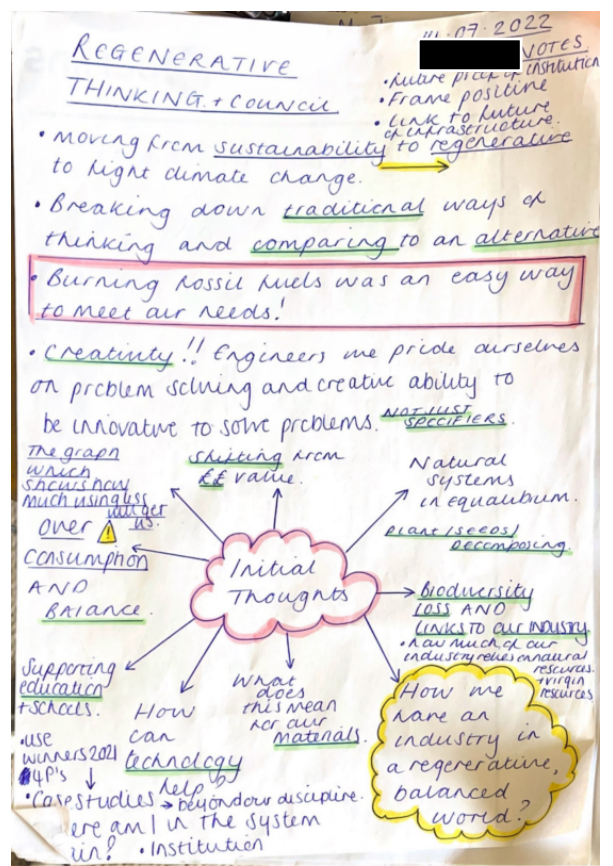 REGENERATIVE
THINKING + COUNCIL
07.2022
NOTES
• Future institution
• Frame positive
• Link to future
of infrastructure.
• Moving from sustainability to regenerative
to fight climate change.
• Breaking down traditional ways of
thinking and comparing to an alternative
• Burning fossil fuels was an easy way
to meet our needs!
• Creativity!! Engineers we pride ourselves
on problem solving and creative ability to
be innovative to solve problems. NOT JUST
SPECIFIERS.
The graph
which
shows how
much using
will get
us.
OVER
CONSUMPTION
AND
BALANCE.
Shifting from
££ value.
Natural
systems
in equalibum.
Plant/seeds/
Decomposing.
Initial
Thoughts
Biodiversity
LOSS AND
LINKS TO OUR INDUSTRY
• how much of our
industry relies on natural
resources
+ virgin
resources
Supporting
education
+ schools.
• use
winners 2021
4P's
• Case studies
How
can
technology
help?
→ beyond our discipline.
What
does
this mean
for our
materials.
How we
have an
industry in
a regenerative,
balanced
world?
ere am I in the system
in? • Institution